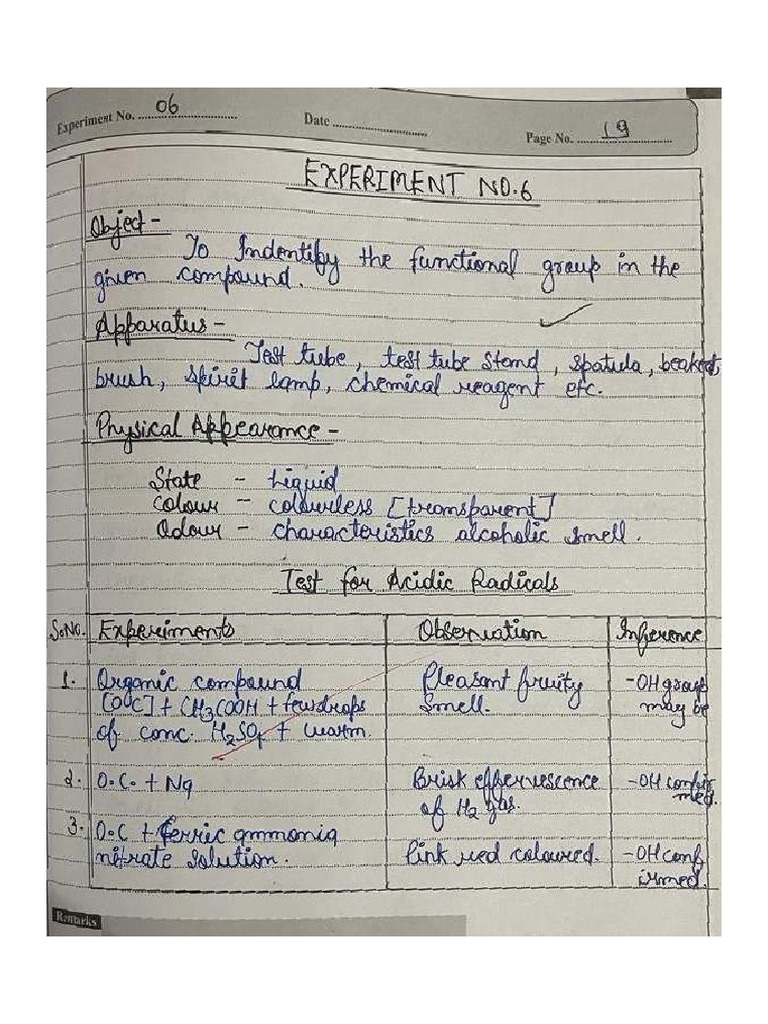 Experiment No. 06 Date Page No. 19
EXPERIMENT NO.6
Object -
To Indentify the functional group in the
given compound.
Apparatus -
Test tube, test tube stand, spatula, beaker,
brush, spirit lamp, chemical reagent etc.
Physical Appearance -
State - Liquid
Colour - colourless [transparent]
Odour - characteristics alcoholic smell.
Test for Acidic Radicals
S.NO. Experiments Observation Inference
1. Organic compound Pleasant fruity -OH group
[O.C] + CH3COOH + few drops smell. may be
of conc. H2SO4 + warm.
2. O.C. + Na Brisk effervescence -OH confir
of H2 gas. med.
3. O.C + Ferric ammonia Pink red coloured. -OH conf
nitrate solution. irmed.
Remarks